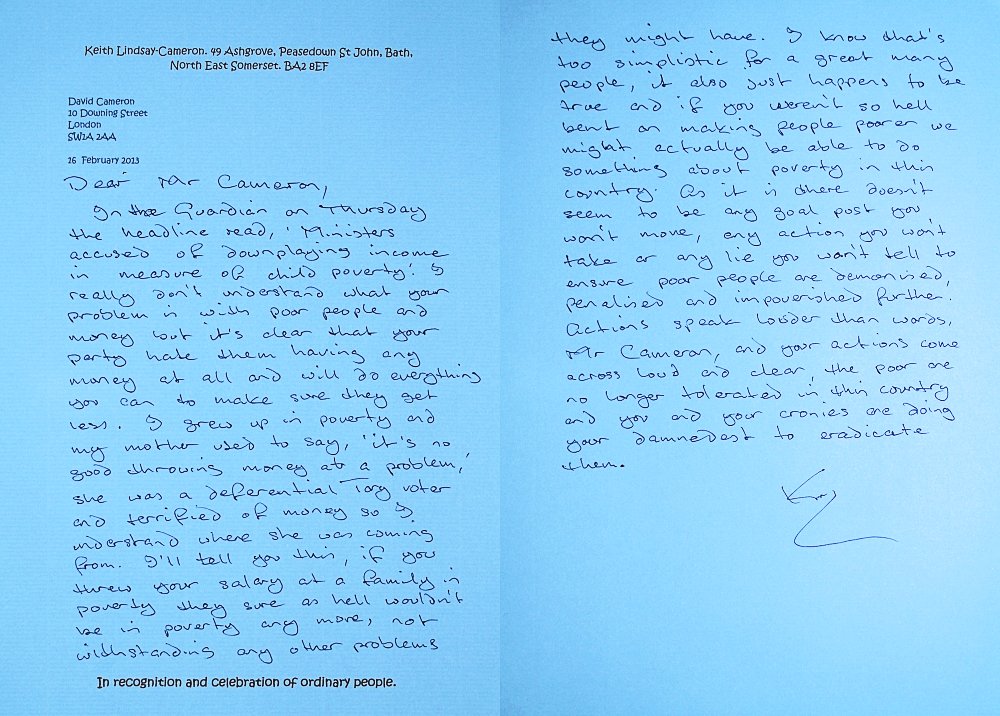 Keith Lindsay-Cameron. 49 Ashgrove, Peasedown St John, Bath,
North East Somerset. BA2 8EF
David Cameron
10 Downing Street
London
SW1A 2AA
16 February 2013
Dear Mr Cameron,
In the Guardian on Thursday
the headline read, 'Ministers
accused of downplaying income
in measure of child poverty'. I
really don't understand what your
problem is with poor people and
money but it's clear that your
party hate them having any
money at all and will do everything
you can to make sure they get
less. I grew up in poverty and
my mother used to say, 'it's no
good throwing money at a problem,'
she was a deferential Tory voter
and terrified of money so I
understand where she was coming
from. I'll tell you this, if you
threw your salary at a family in
poverty they sure as hell wouldn't
be in poverty any more, not
withstanding any other problems
In recognition and celebration of ordinary people.
they might have. I know that's
too simplistic for a great many
people, it also just happens to be
true and if you weren't so hell
bent on making people poorer we
might actually be able to do
something about poverty in this
country. As it is there doesn't
seem to be any goal post you
won't move, any action you won't
take or any lie you won't tell to
ensure poor people are demonised,
penalised and impoverished further.
Actions speak louder than words,
Mr Cameron, and your actions come
across loud and clear, the poor are
no longer tolerated in this country
and you and your cronies are doing
your damnedest to eradicate
them.